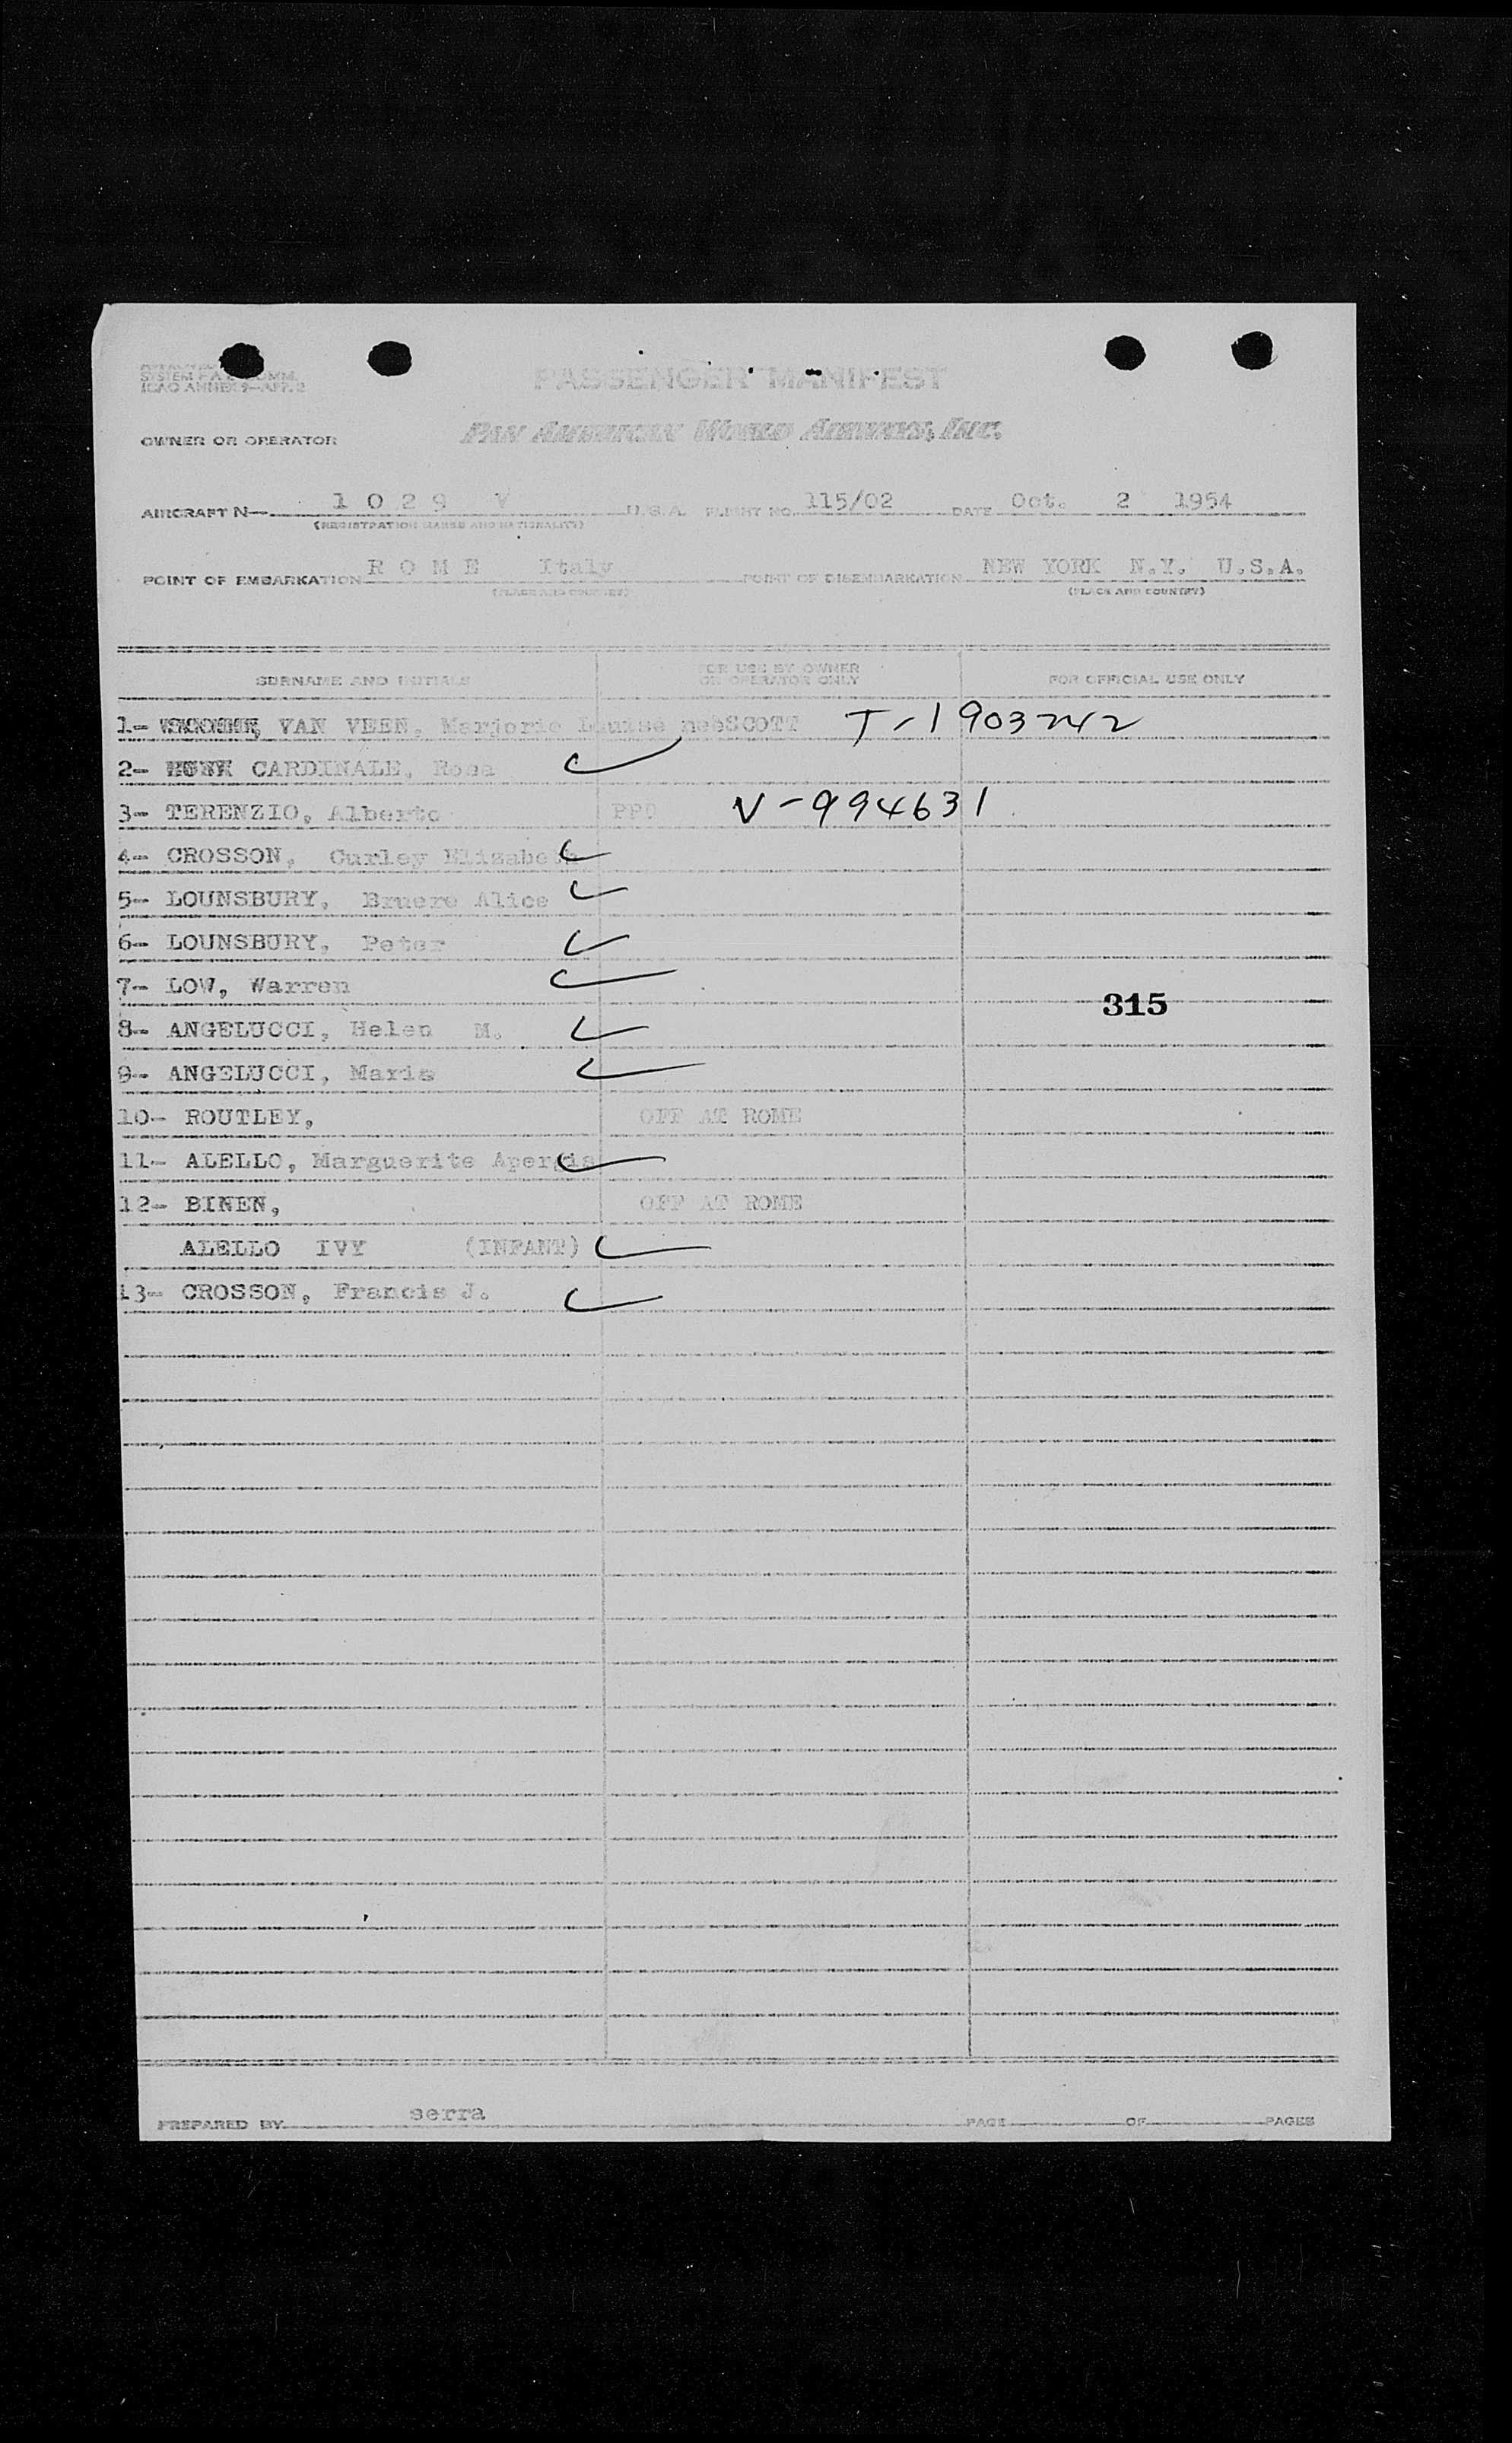 SYSTEM F.A.
ICAO ANNEX 9—APP. 2
PASSENGER MANIFEST
OWNER OR OPERATOR PAN AMERICAN WORLD AIRWAYS, INC.
AIRCRAFT N— 1 0 2 9 V U.S.A. FLIGHT NO. 115/02 DATE Oct. 2 1954
(REGISTRATION MARKS AND NATIONALITY)
POINT OF EMBARKATION R O M E Italy POINT OF DISEMBARKATION NEW YORK N.Y. U.S.A.
(PLACE AND COUNTRY) (PLACE AND COUNTRY)
SURNAME AND INITIALS FOR USE BY OWNER OR OPERATOR ONLY FOR OFFICIAL USE ONLY
1- VAN VEEN, Marjorie Louise neeSCOTT T-1903742
2- CARDINALE, Rosa
3- TERENZIO, Alberto V-994631
4- CROSSON, Curley Elizabeth
5- LOUNSBURY, Bruere Alice
6- LOUNSBURY, Peter
7- LOW, Warren
315
8- ANGELUCCI, Helen M.
9- ANGELUCCI, Marie
10- ROUTLEY, OFF AT ROME
11- ALELLO, Marguerite Apergis
12- BINEN, OFF AT ROME
ALELLO IVY (INFANT)
13- CROSSON, Francis J.
PREPARED BY serra PAGE OF PAGES